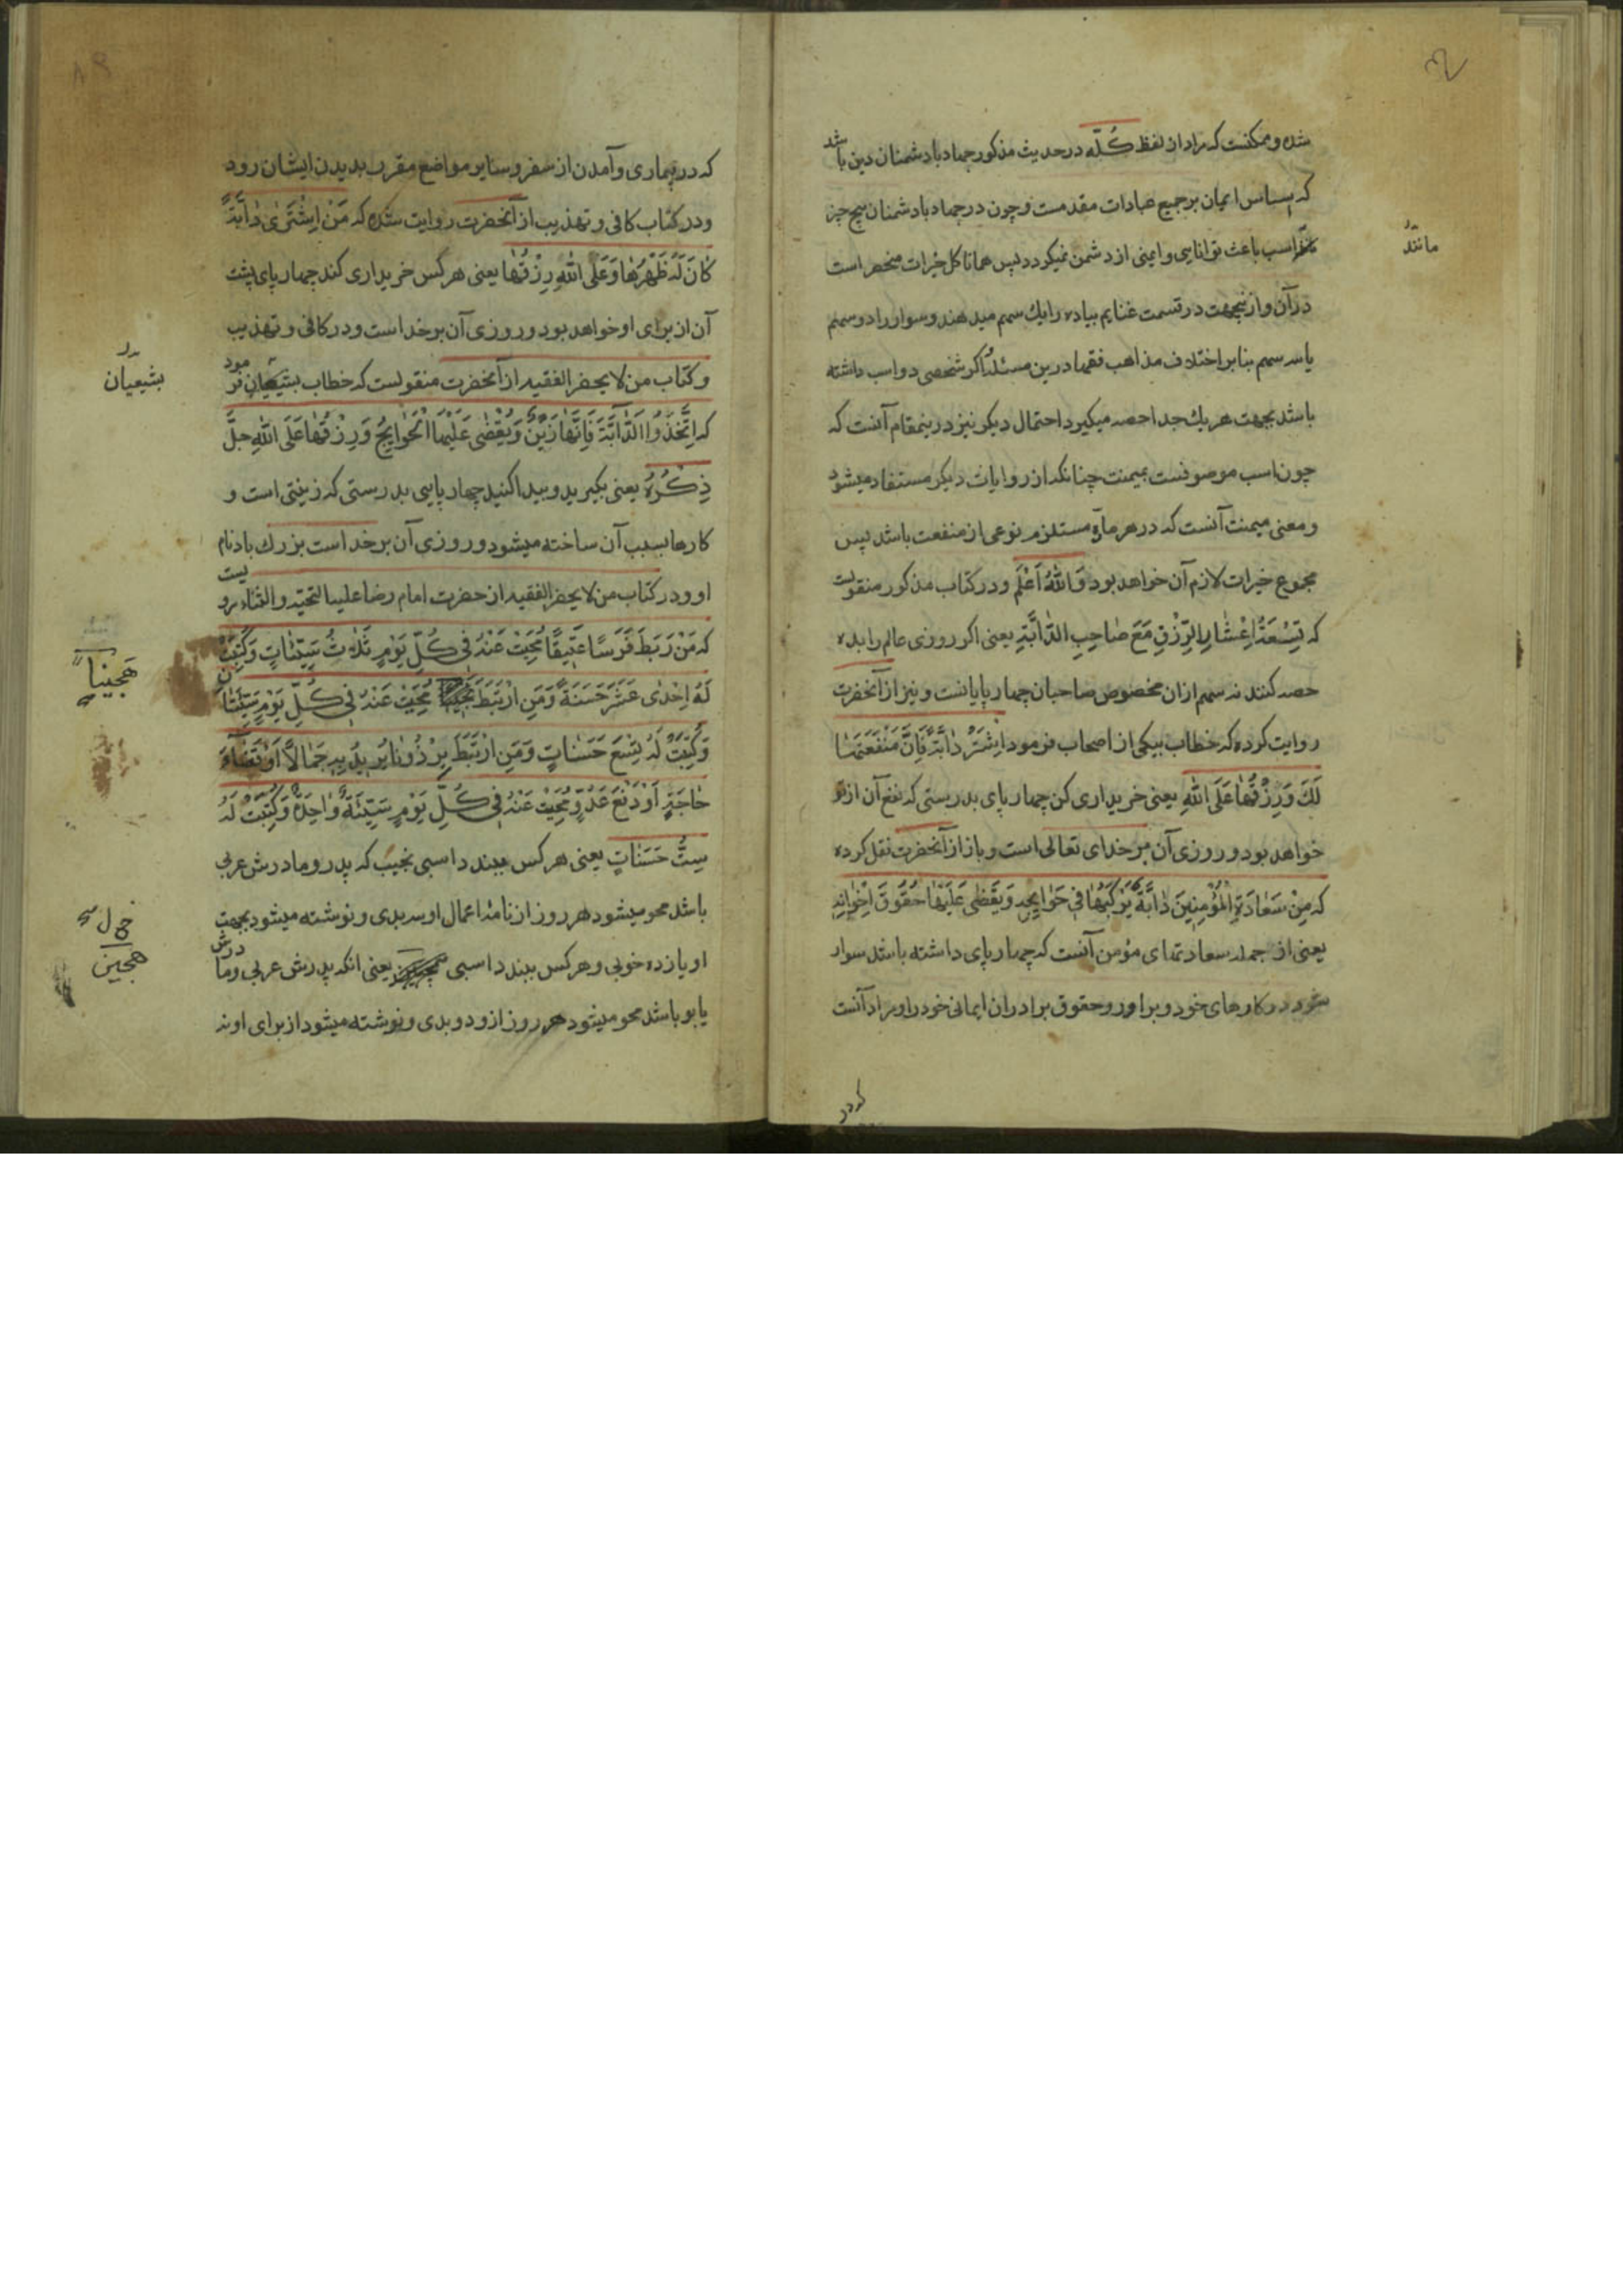 شده و ممکنست که مراد از لفظ کُلّه در حدیث مذکور جهاد با دشمنان دین باشد
که اساس ایمان بر جمیع عبادات مقدمست و چون در جهاد با دشمنان هیچ چیز
اسب باعث توانایی و ایمنی از دشمن نمیکردد پس همانا کل خیرات منحصر است
مانند
در آن و از ینجهت در قسمت غنایم پیاده را یك سهم میدهند و سوار را دو سهم
یا سه سهم بنا بر اختلاف مذاهب فقها درین مسئله و اکر شخصی دو اسب داشته
باشد بجهت هر یك جدا حصه میکیرد احتمال دیکر نیز درینمقام آنست که
چون اسب موصوفست بمیمنت چنانکه از روایات دیکر مستفاد میشود
و معنی میمنت آنست که در هر مادّه مستلزم نوعی از منفعت باشد پس
مجموع خیرات لازم آن خواهد بود وَاللّٰهُ اَعْلَم و در کتاب مذکور منقولست
که تِسْعَةُ اَعْشٰارِ الرِّزْقِ مَعَ صٰاحِبِ الدّٰابَّةِ یعنی اکر روزی عالم را بده
حصه کنند نه سهم ازان مخصوص صاحبان چهارپایانست و نیز از آنحضرت
روایت کرده که خطاب بیکی از اصحاب فرمود اِشْتَرْ دٰابَّةً فَاِنَّ مَنْفَعَتَهٰا
لَكَ وَرِزْقُهٰا عَلَی اللّٰهِ یعنی خریداری کن چهارپای بدرستی که نفع آن از تو
خواهد بود و روزی آن بر خدای تعالی است و باز از آنحضرت نقل کرده
که مِنْ سَعٰادَةِ الْمُؤْمِنِینَ دٰابَّةٌ یَرْکَبُهٰا فِی حَوٰایِجِهِ وَیَقْضِی عَلَیْهٰا حُقُوقَ اِخْوٰانِهِ
یعنی از جمله سعادتهای مؤمن آنست که چهارپای داشته باشد سوار
شود در کارهای خود و برآورد حقوق برادران ایمانی خود را و مراد آنست
که در
که در بیماری و آمدن از سفر و سایر مواضع مقرر بدیدن ایشان رود
و در کتاب کافی و تهذیب از آنحضرت روایت شده که مَنْ اِشْتَرٰی دٰابَّةً
کٰانَ لَهُ ظَهْرُهٰا وَعَلَی اللّٰهِ رِزْقُهٰا یعنی هر کس خریداری کند چهارپای پشت
آن از برای او خواهد بود و روزی آن بر خداست و در کافی و تهذیب
و کتاب من لا یحضر الفقیه از آنحضرت منقولست که خطاب بشیعیان فرمود
بشیعیان
که اِتَّخِذُوا الدّٰابَّةَ فَاِنَّهٰا زَیْنٌ وَیُقْضٰی عَلَیْهٰا الْحَوٰایِجُ وَرِزْقُهٰا عَلَی اللّٰهِ جَلَّ
ذِکْرُهُ یعنی بکیرید و پیدا کنید چهارپایی بدرستی که زینتی است و
کارها بسبب آن ساخته میشود و روزی آن بر خداست بزرك باد نام
او و در کتاب من لا یحضر الفقیه از حضرت امام رضا علیه التحیّه و الثناء مرویست
که مَنْ رَبَطَ فَرَسًا عَتِیقًا مُحِیَتْ عَنْهُ فِی کُلِّ یَوْمٍ ثَلٰثُ سَیِّئٰاتٍ وَکُتِبَتْ
لَهُ اِحْدٰی عَشَرَ حَسَنَةً وَمَنِ ارْتَبَطَ مُحِیَتْ عَنْهُ فِی کُلِّ یَوْمٍ سَیِّئَتٰانِ
هَجِینًا
وَکُتِبَتْ لَهُ تِسْعَ حَسَنٰاتٍ وَمَنِ ارْتَبَطَ بِرْذَوْنًا یُرِیدُ بِهِ جَمٰالًا اَوْ قَضٰاءَ
حٰاجَةٍ اَوْ دَفْعَ عَدُوٍّ مُحِیَتْ عَنْهُ فِی کُلِّ یَوْمٍ سَیِّئَةٌ وٰاحِدَةٌ وَکُتِبَتْ لَهُ
سِتُّ حَسَنٰاتٍ یعنی هر کس ببندد اسبی نجیب که پدر و مادرش عربی
باشد محو میشود هر روز از نامهٔ اعمال او سه بدی و نوشته میشود بجهت
او یازده خوبی و هر کس ببندد اسبی یعنی انکه پدرش عربی و مادرش
هجین
یابو باشد محو میشود هر روز ازو دو بدی و نوشته میشود از برای او نه